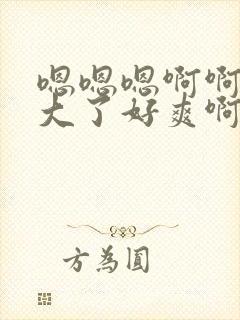 嗯嗯嗯啊啊
大了好爽啊
方為圓